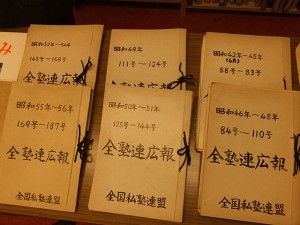 み
昭和52年~54年
145号~168号
昭和49年
111号~124号
昭和42年~45年
(6月)
58号~83号
昭和55年~56年
169号~187号
全塾連広報
全国私塾連盟
昭和50年~51年
125号~144号
全塾連広報
全国私塾連盟
昭和46年~48年
84号~110号
全塾連広報
全国私塾連盟